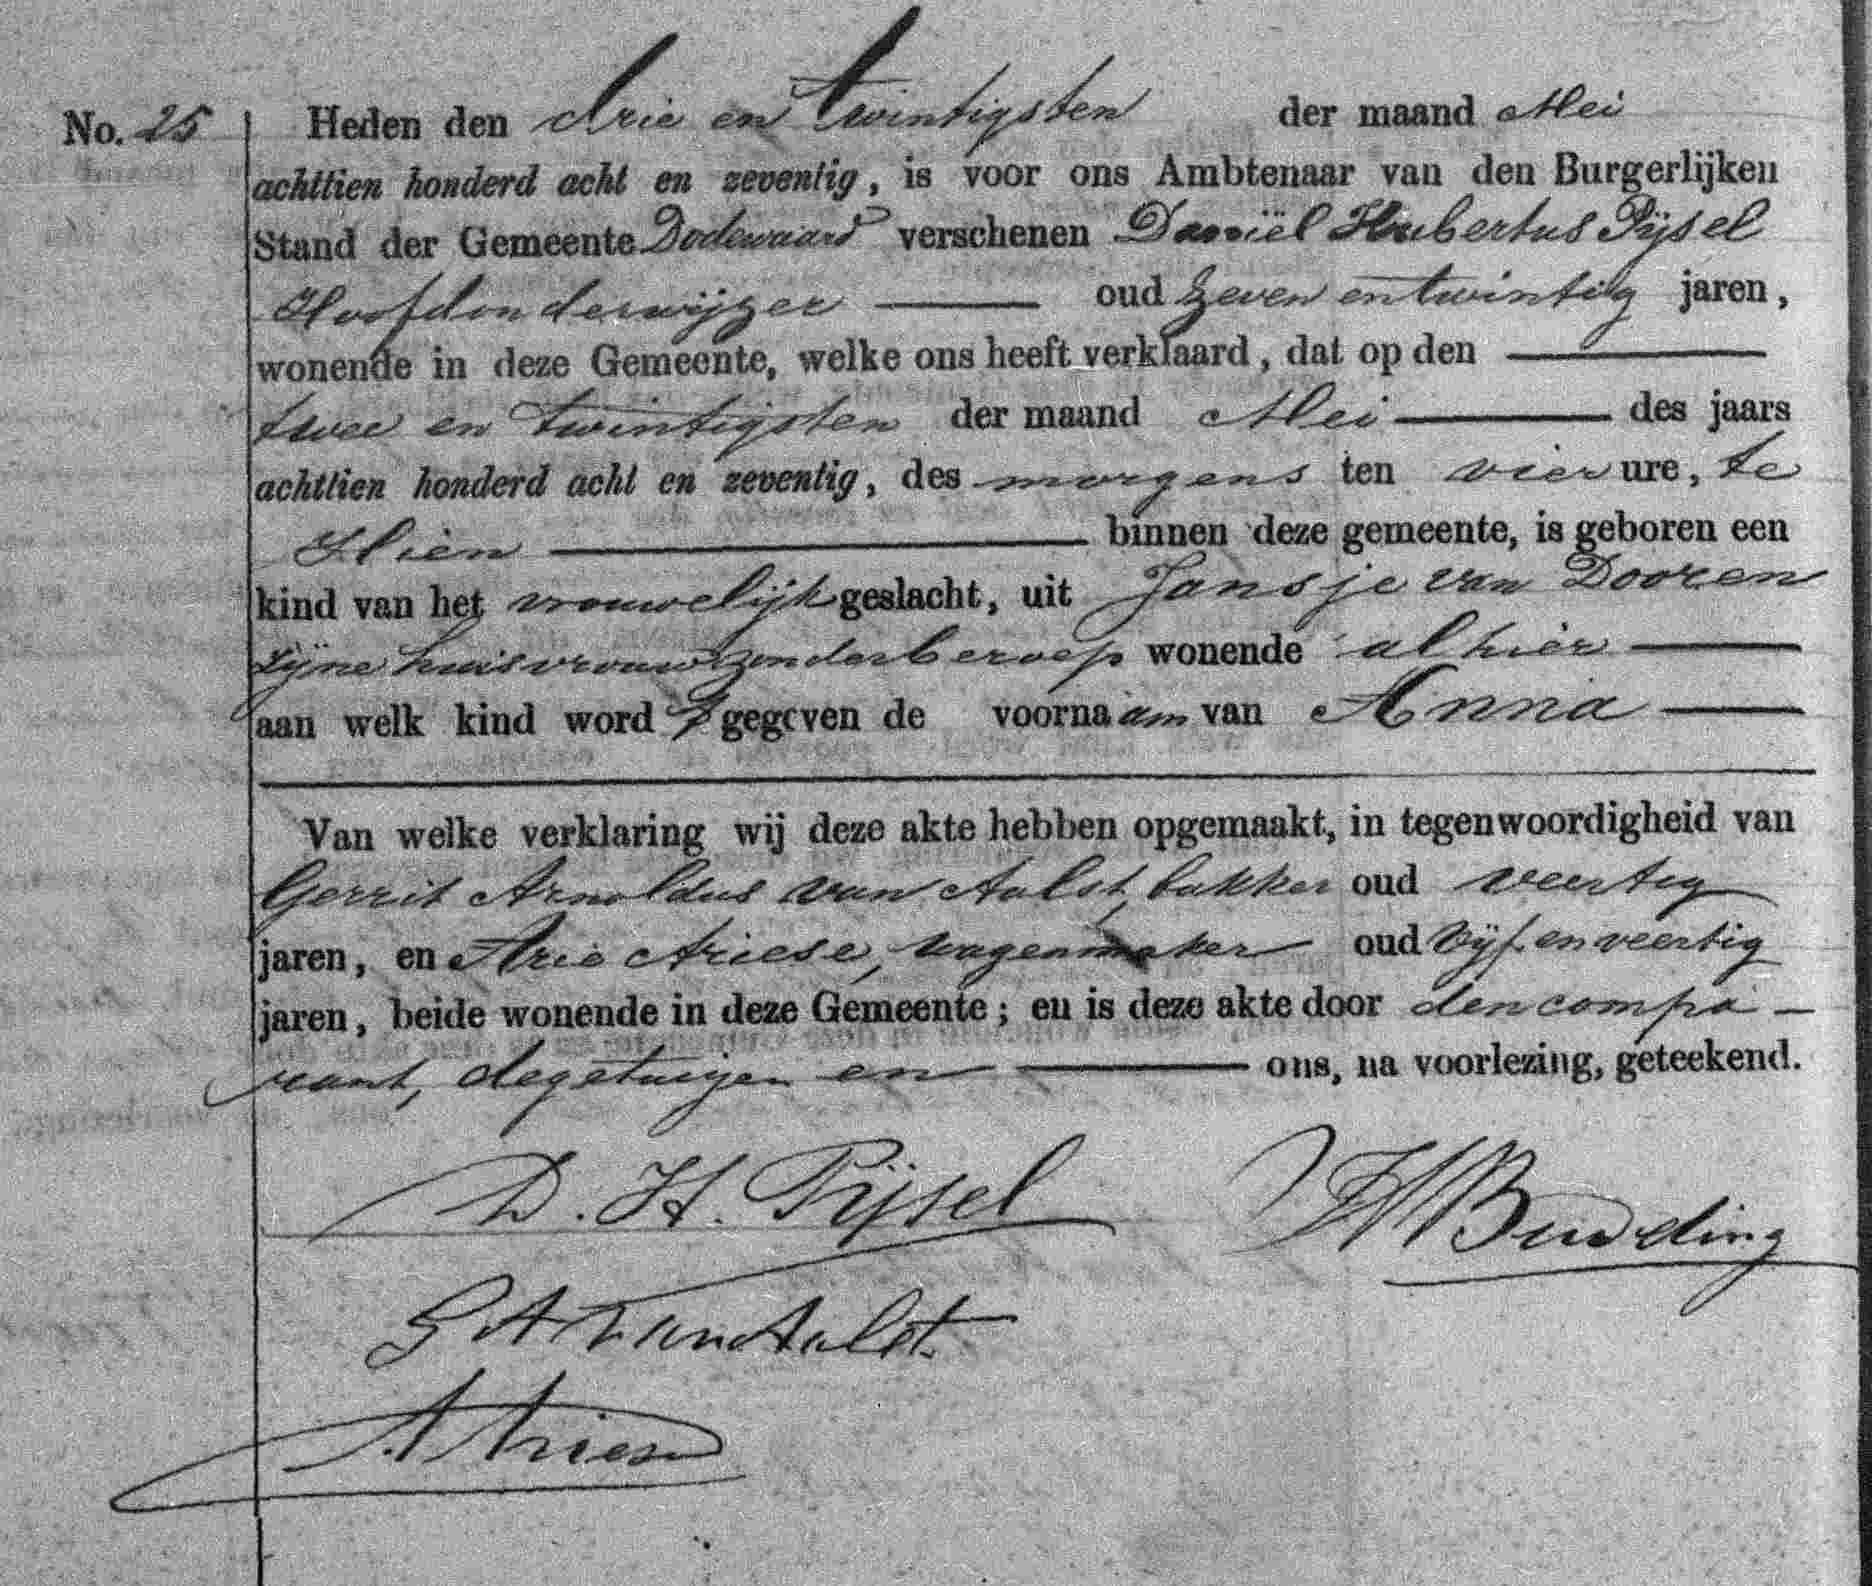 No. 25 Heden den drie en twintigsten der maand Mei
achttien honderd acht en zeventig, is voor ons Ambtenaar van den Burgerlijken
Stand der Gemeente Dodewaard verschenen Daniël Hubertus Pijsel
Hoofdonderwijzer oud zeven en twintig jaren,
wonende in deze Gemeente, welke ons heeft verklaard, dat op den
twee en twintigsten der maand Mei des jaars
achttien honderd acht en zeventig, des morgens ten vier ure, te
Hien binnen deze gemeente, is geboren een
kind van het vrouwelijk geslacht, uit Jansje van Dooren
zijne huisvrouw zonder beroep wonende alhier
aan welk kind word t gegeven de voornaam van Anna
Van welke verklaring wij deze akte hebben opgemaakt, in tegenwoordigheid van
Gerrit Arnoldus van Aalst, bakker oud veertig
jaren, en Arie Ariese, wagenmaker oud vijf en veertig
jaren, beide wonende in deze Gemeente; en is deze akte door den compa-
rant, de getuigen en ons, na voorlezing, geteekend.
D. H. Pijsel
Budding
G A van Aalst.
A Ariese